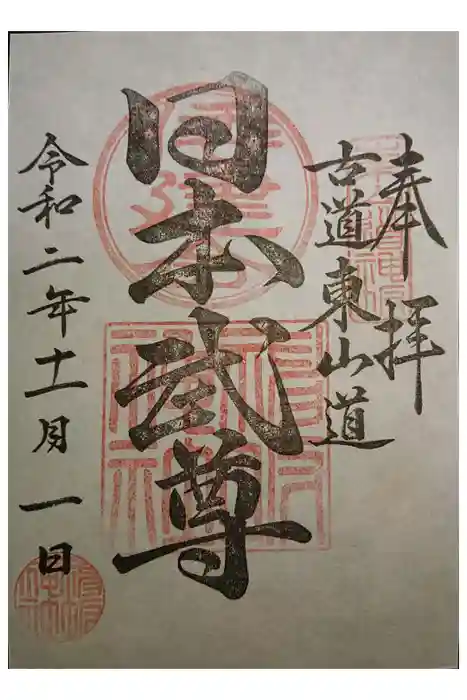 奉拝
古道東山道
日本武尊
令和二年十一月一日